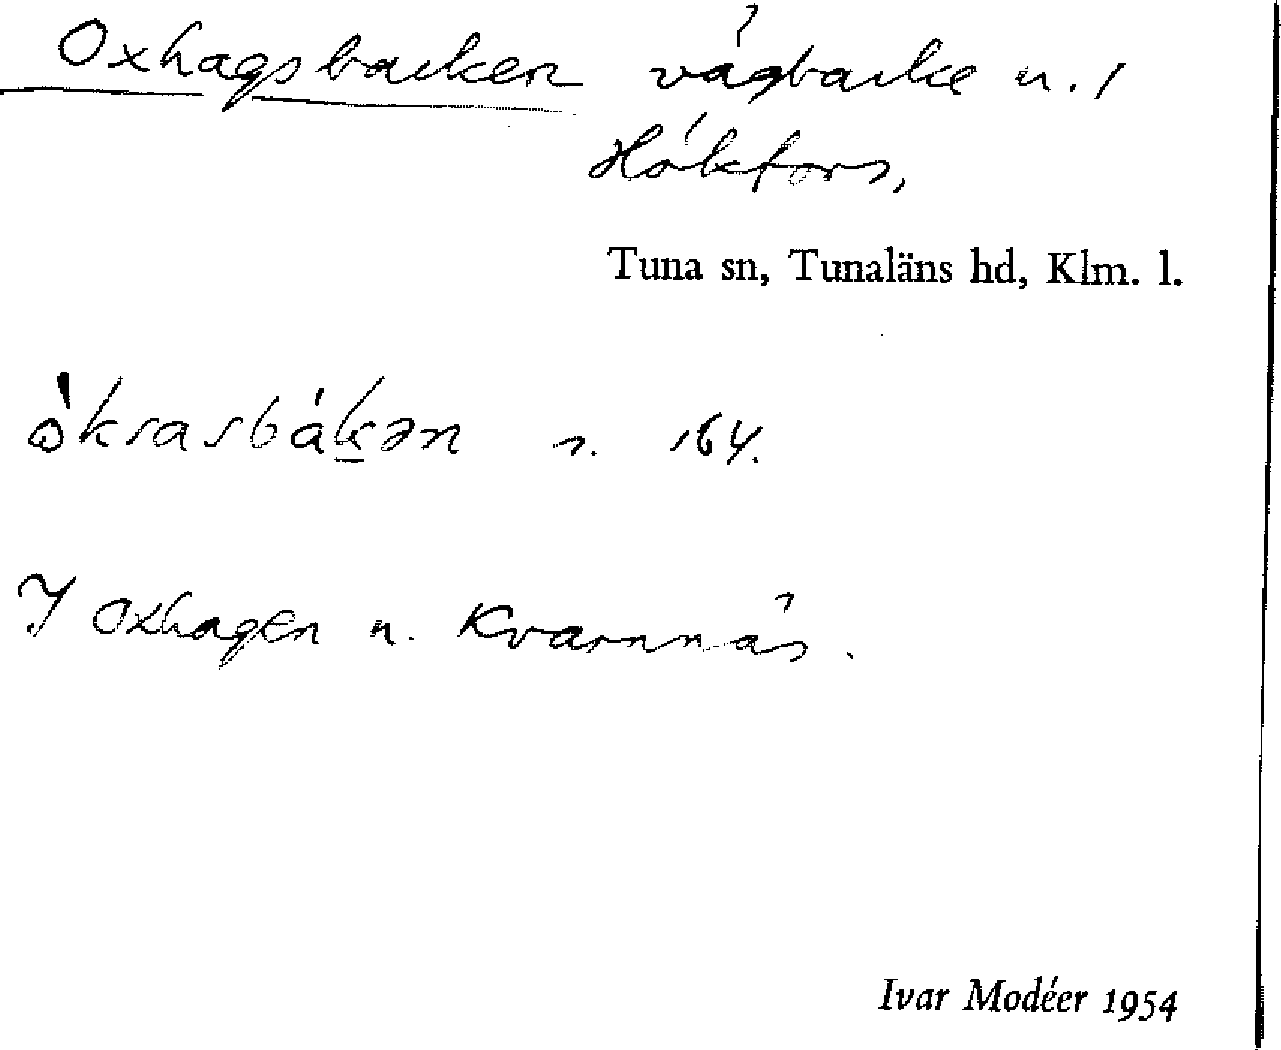 Oxhagsbacken vägbacke n. /
Hökfors,
Tuna sn, Tunaläns hd, Klm. l.
s. 164.
I Oxhagen n. Kvarnnäs.
Ivar Modéer 1954